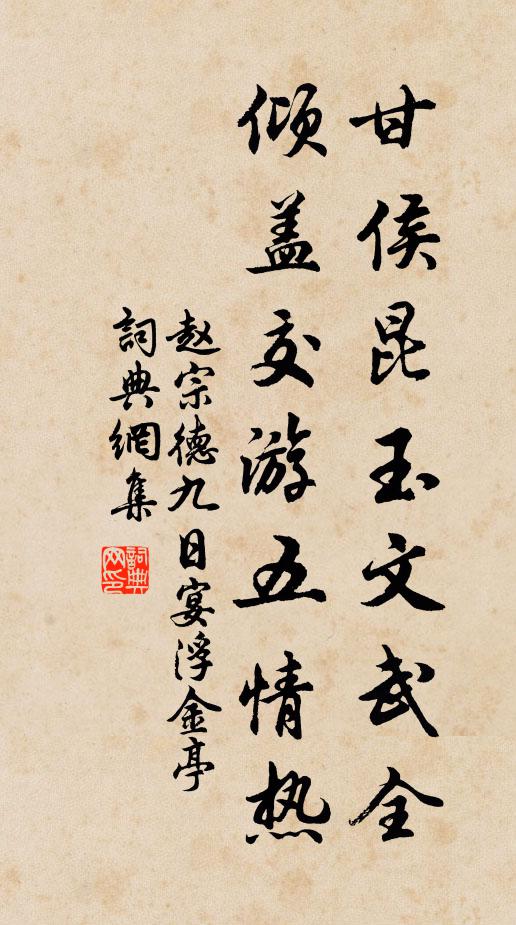 甘侯昆玉文武全
倾盖交游五情热
赵宗德九日宴浮金亭
詞典網集
詞典网印